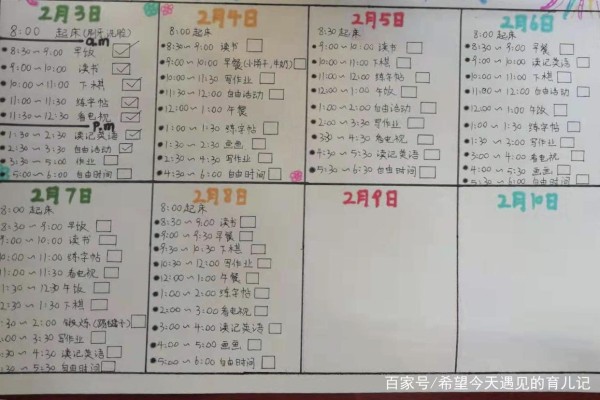 2月3日
8:00 起床(刷牙洗脸)
a.m
8:30~9:00 早饭
9:00~10:00 读书
10:00~11:00 下棋
11:00~11:30 练字帖
11:30~12:30 看电视
p.m
1:30~2:30 读记英语
2:30~3:30 自由活动
3:30~5:00 作业
5:00~6:00 自由时间
2月4日
8:00 起床
8:30~9:00 读书
9:00~10:00 早餐(小饼干,牛奶)
10:00~11:30 写作业
11:30~12:00 自由活动
12:00~1:00 午餐
1:00~1:30 练字帖
1:30~2:30 画画
2:30~4:30 写作业
4:30~6:00 自由时间
2月5日
8:30 起床
9:00~10:00 读书
10:00~11:00 下棋
11:00~12:00 练字帖
12:00~1:00 午饭
1:00~2:00 自由活动
2:00~3:30 写作业
3:30~4:30 看电视
4:30~5:30 读记英语
5:30~6:30 自由时间
2月6日
8:00 起床
8:30~9:00 早餐
9:00~10:00 读书
10:00~11:00 下棋
11:00~12:00 自由活动
12:00~1:00 午饭
1:00~1:30 练字帖
1:30~3:00 写作业
3:00~4:00 看电视
4:00~5:30 读记英语
5:30~6:30 自由时间
2月7日
8:00 起床
8:30~9:00 早饭
9:00~10:00 读书
10:00~11:00 练字帖
11:00~11:30 看电视
11:30~12:30 午饭
12:30~1:30 下棋
1:30~2:00 锻炼
2:00~3:30 写作业
3:30~4:30 读记英语
4:30~5:30 自由时间
2月8日
8:00 起床
8:30~9:00 读书
9:00~9:30 早餐
9:30~10:30 下棋
10:30~12:00 写作业
12:00~1:00 午餐
1:00~2:00 练字帖
2:00~3:00 看电视
3:00~4:00 读记英语
4:00~5:00 画画
5:00~6:00 自由时间
2月9日
2月10日
百家号/希望今天遇见的育儿记